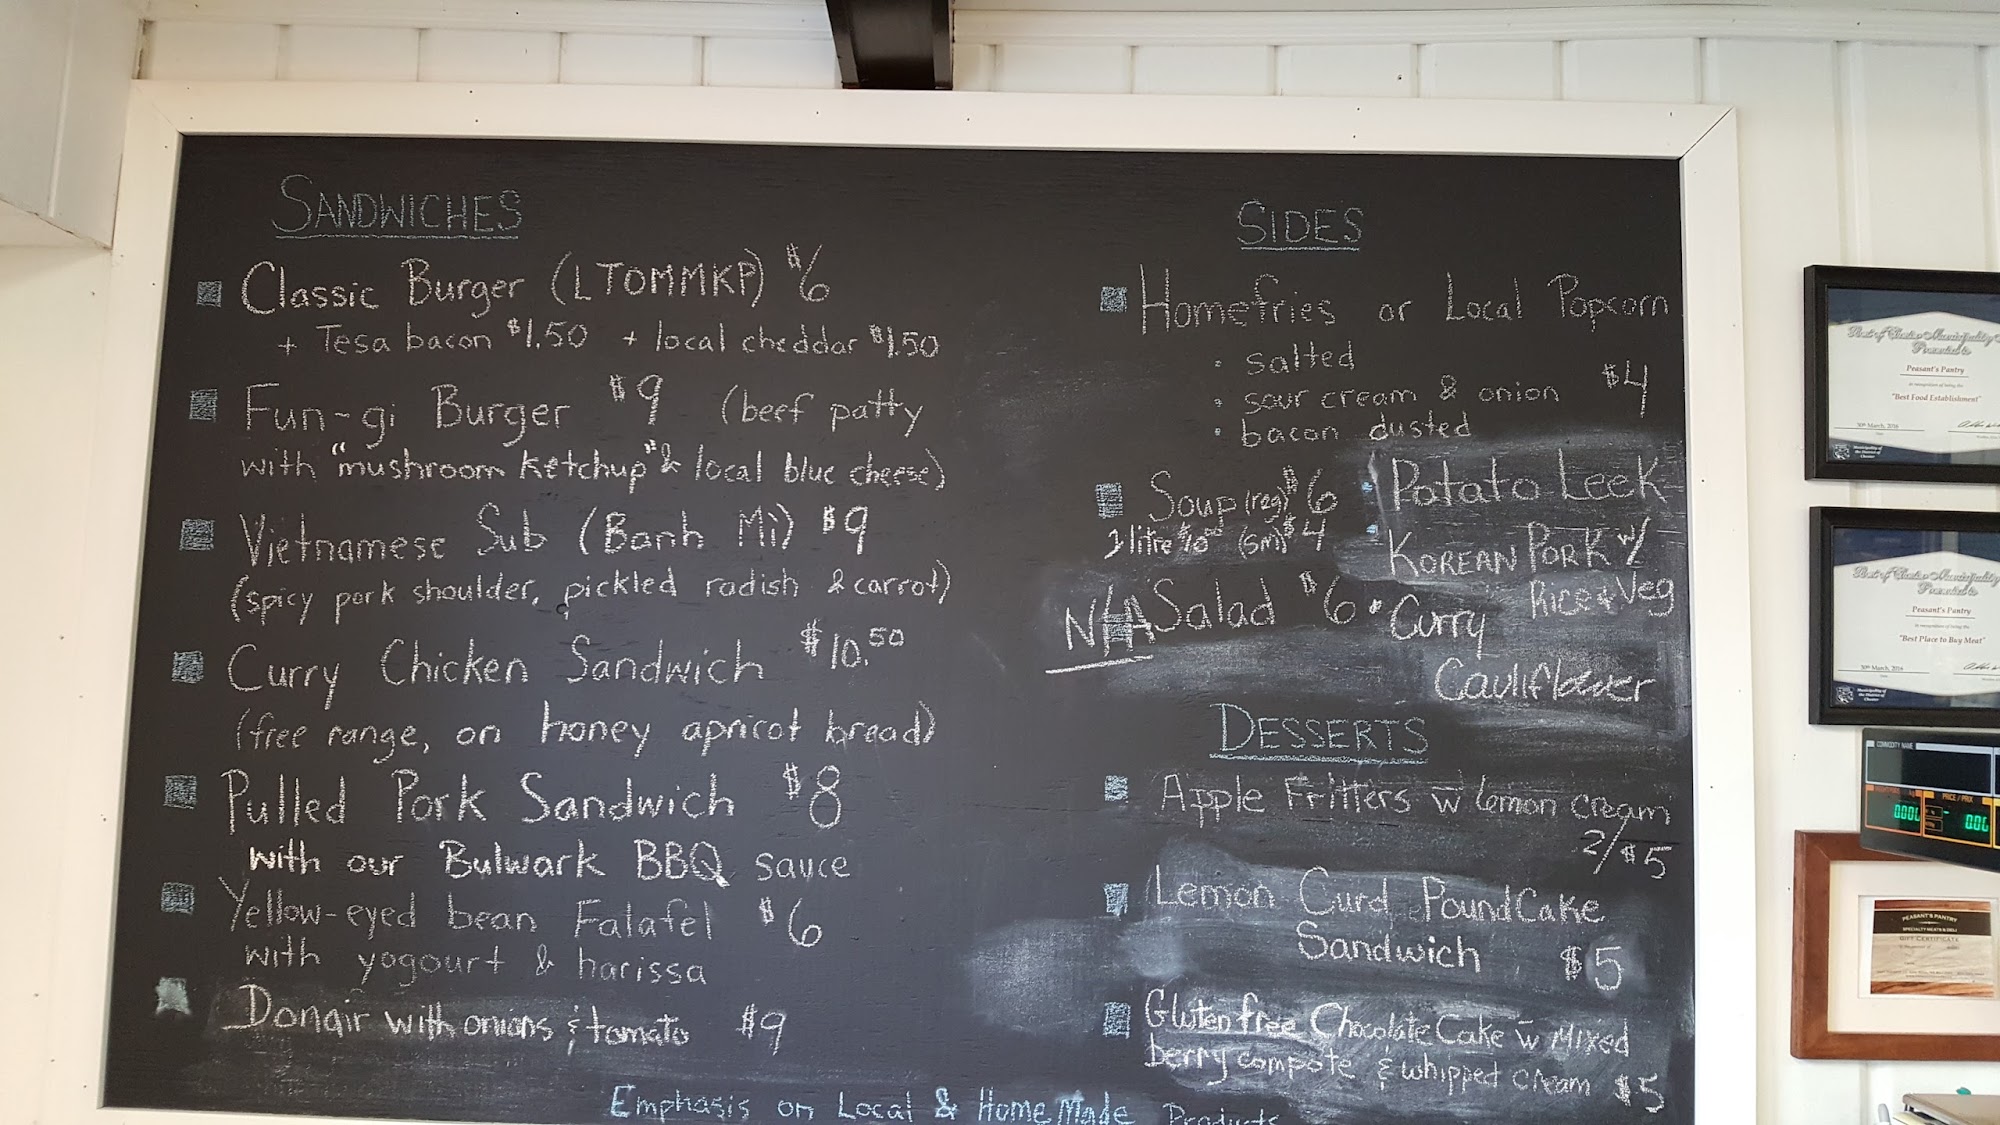 SANDWICHES
Classic Burger (LTOMMKP) $6
+ Tesa bacon $1.50 + local cheddar $1.50
Fun-gi Burger $9 (beef patty
with "mushroom ketchup" & local blue cheese)
Vietnamese Sub (Banh Mi) $9
(spicy pork shoulder, pickled radish & carrot)
Curry Chicken Sandwich $10.50
(free range, on honey apricot bread)
Pulled Pork Sandwich $8
with our Bulwark BBQ sauce
Yellow-eyed bean Falafel $6
with yogourt & harissa
Donair with onions & tomato $9
SIDES
Homefries or Local Popcorn
• salted
• sour cream & onion $4
• bacon dusted
Soup (reg) $6
1 litre $10.00 (sm) $4
• Potato Leek
• KOREAN PORK w/
Rice & Veg
N/A Salad $6
• Curry
Cauliflower
DESSERTS
Apple Fritters w lemon cream
2/$5
Lemon Curd Pound Cake
Sandwich $5
Gluten free Chocolate Cake w Mixed
berry compote & whipped cream $5
Emphasis on Local & HomeMade Products
Peasant's Pantry
"Best Food Establishment"
30th March, 2016
Municipality of
the District of
Chester
Peasant's Pantry
"Best Place to Buy Meat"
30th March, 2016
Municipality of
the District of
Chester
COMMODITY NAME
PRICE/PRIX
PEASANT'S PANTRY
SPECIALTY MEATS & DELI
GIFT CERTIFICATE